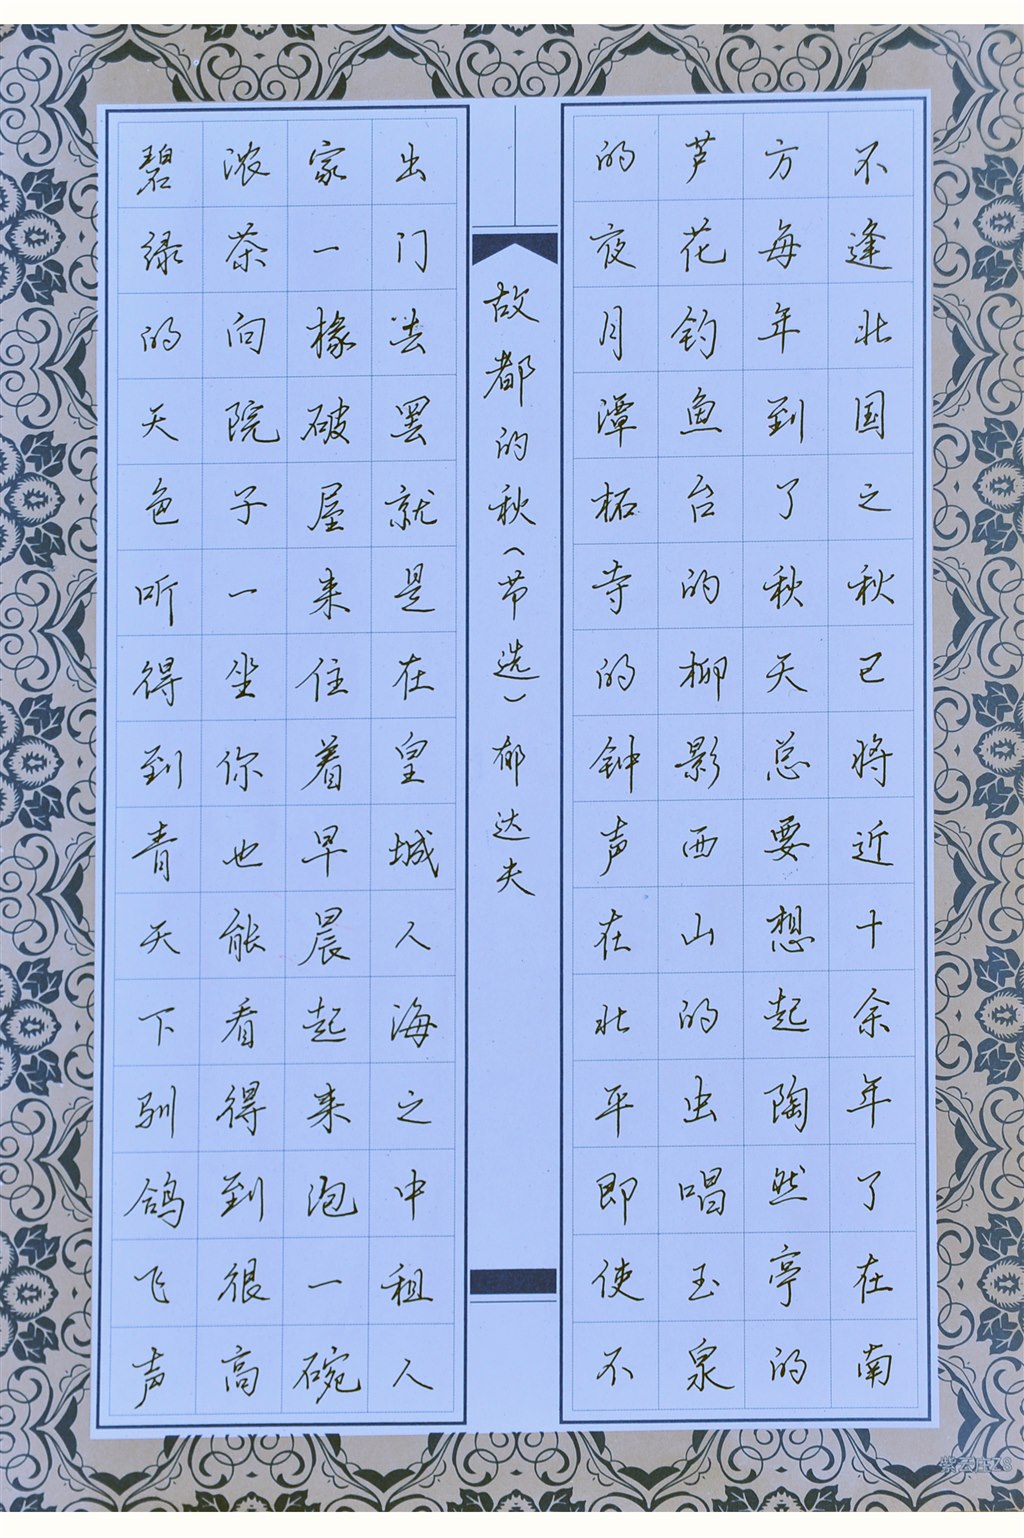 不逢北国之秋已将近十余年了在南
方每年到了秋天总要想起陶然亭的
芦花钓鱼台的柳影西山的虫唱玉泉
的夜月潭柘寺的钟声在北平即使不
故都的秋（节选）郁达夫
出门去罢就是在皇城人海之中租人
家一椽破屋来住着早晨起来泡一碗
浓茶向院子一坐你也能看得到很高
碧绿的天色听得到青天下驯鸽飞声
紫云庄Z8